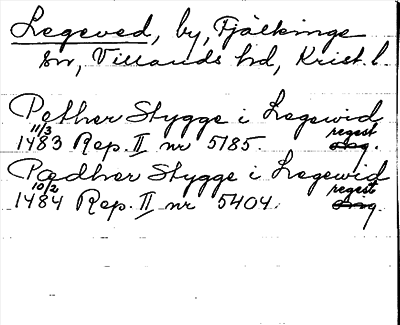 Legeved, by, Fjälkinge
sn, Villands hd, Krist. l.
Pether Stygge i Legewid
11/3 1483 Rep. II nr 5185. regest
Pædher Stygge i Legewid
10/2 1484 Rep. II nr 5404. regest